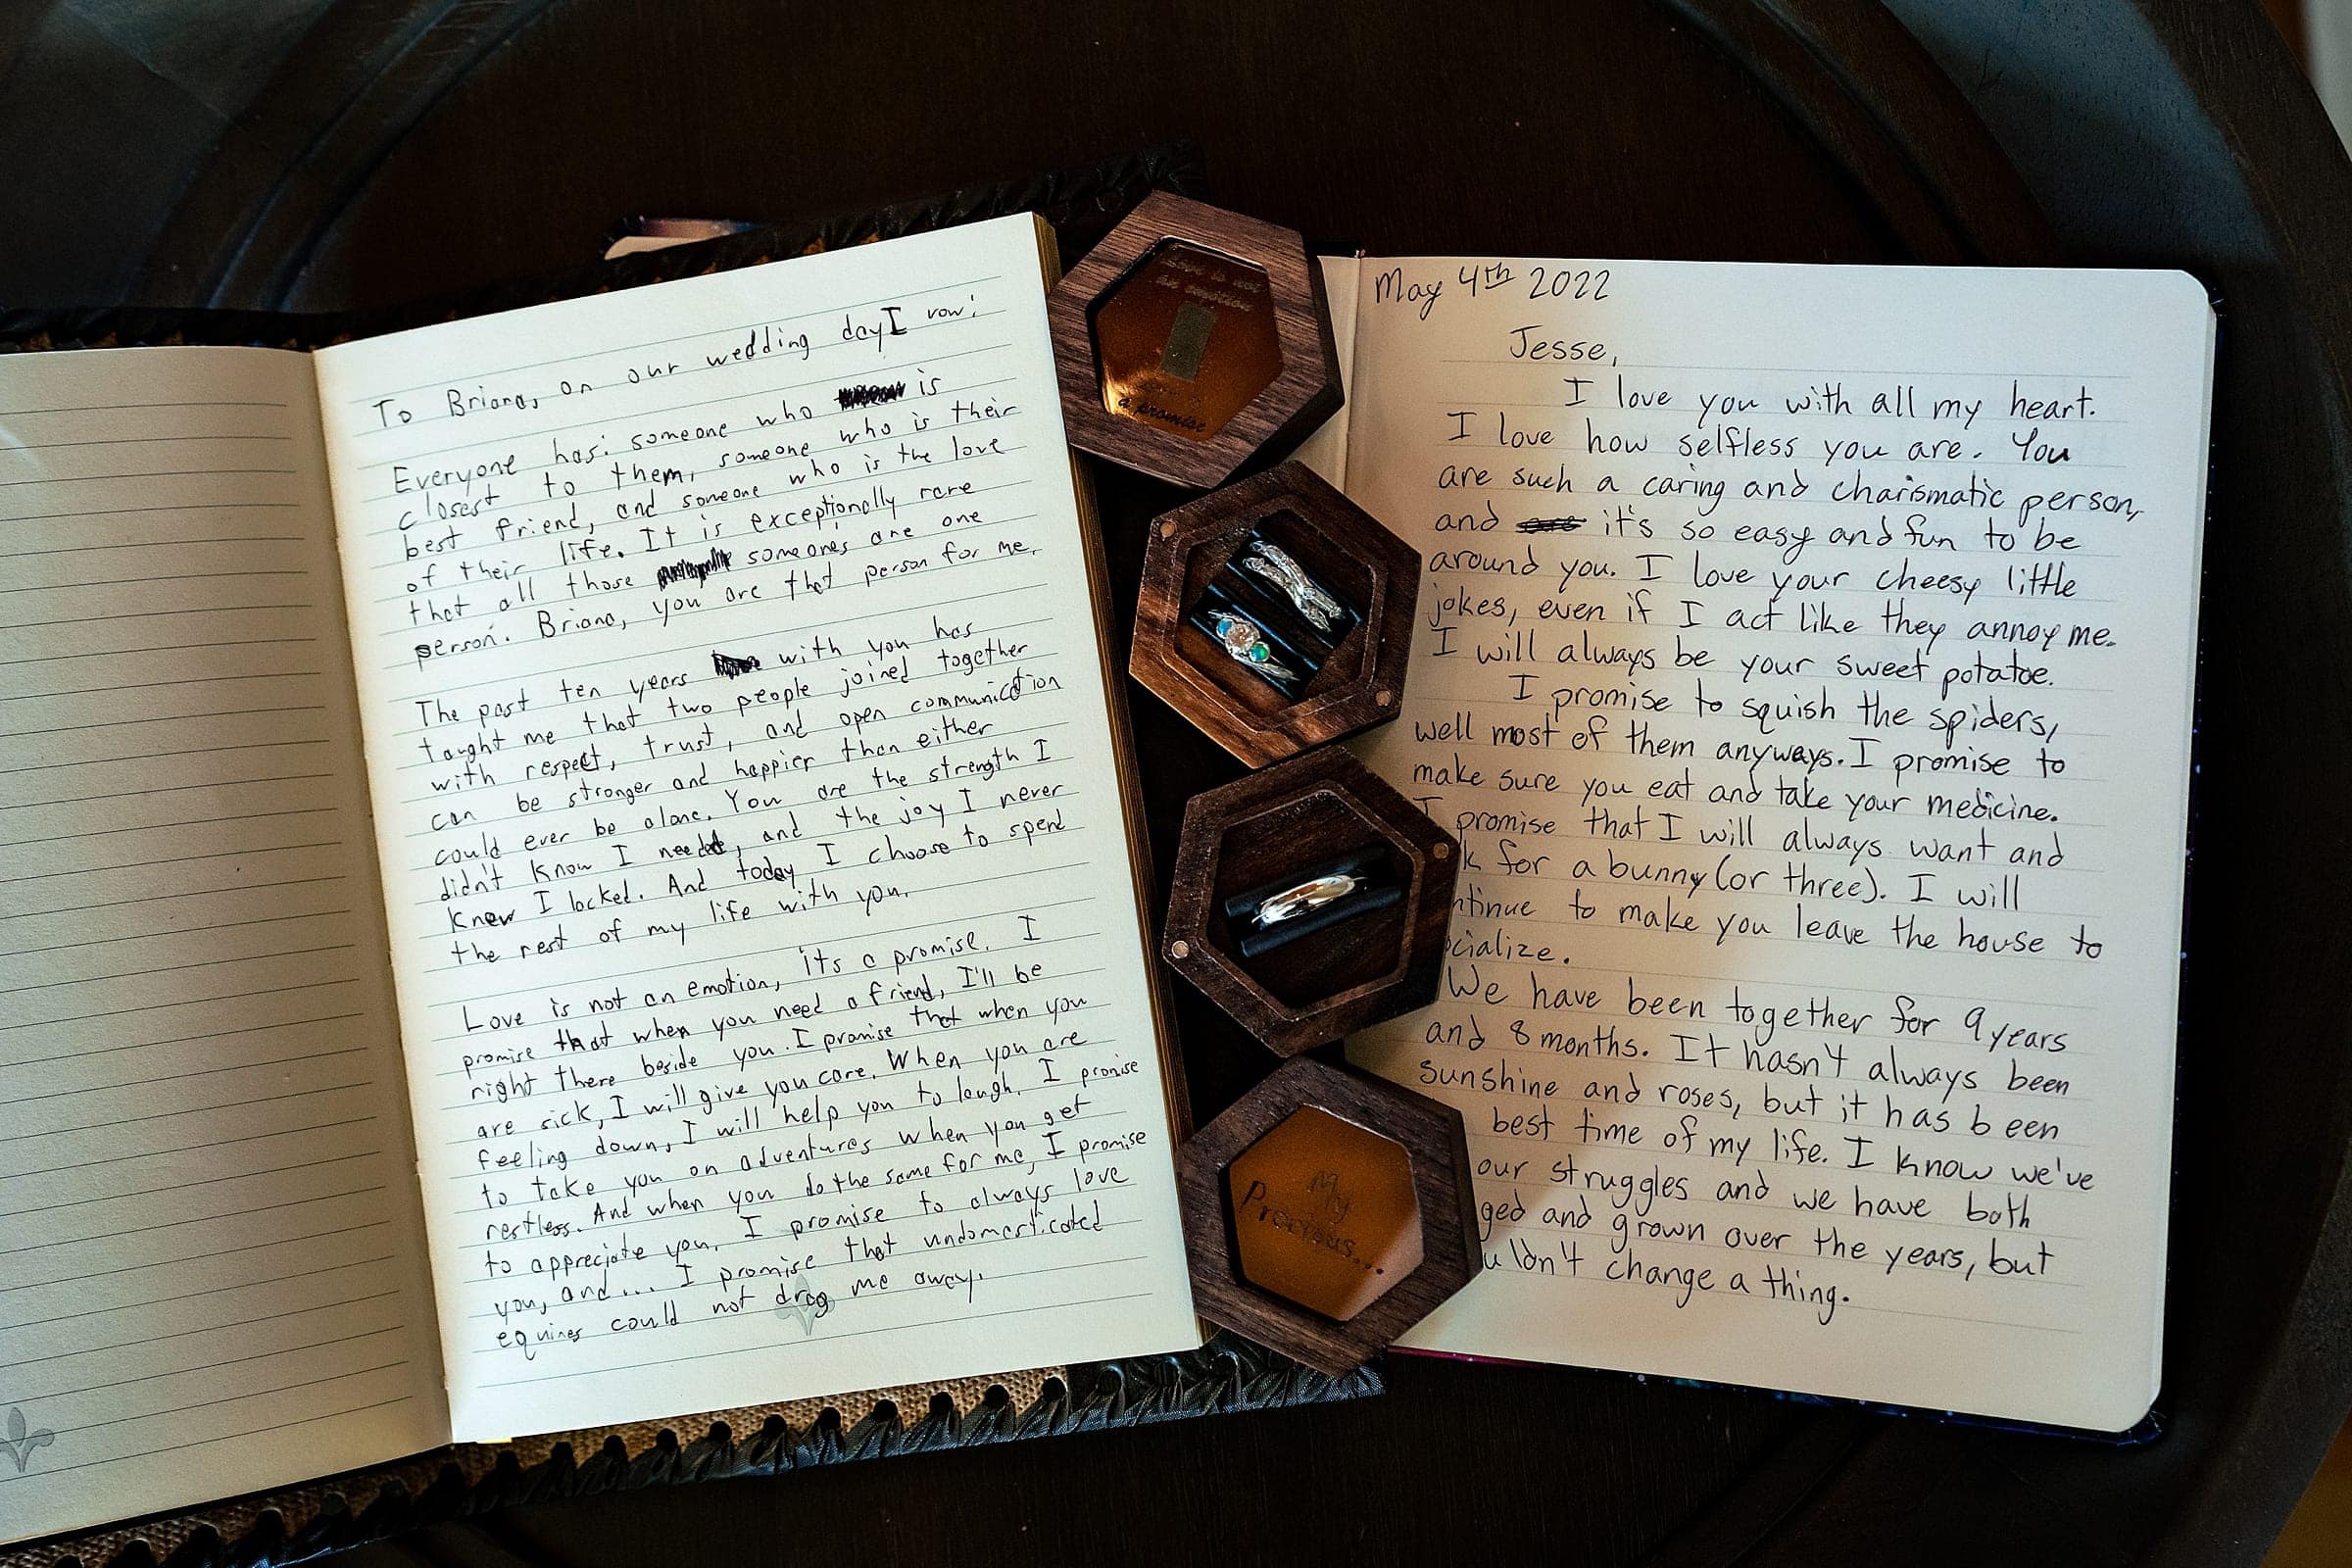 To Briana, on our wedding day I vow:
Everyone has: someone who is
closest to them, someone who is their
best friend, and someone who is the love
of their life. It is exceptionally rare
that all those someones are one
person. Briana, you are that person for me.
The past ten years with you has
taught me that two people joined together
with respect, trust, and open communication
can be stronger and happier than either
could ever be alone. You are the strength I
didn't know I needed, and the joy I never
knew I lacked. And today I choose to spend
the rest of my life with you.
Love is not an emotion, its a promise. I
promise that when you need a friend, I'll be
right there beside you. I promise that when you
are sick, I will give you care. When you are
feeling down, I will help you to laugh. I promise
to take you on adventures when you get
restless. And when you do the same for me, I promise
to appreciate you. I promise to always love
you, and... I promise that undomesticated
equines could not drag me away.
Love is not
an emotion
a promise
My
Precious...
May 4th 2022
Jesse,
I love you with all my heart.
I love how selfless you are. You
are such a caring and charismatic person,
and are it's so easy and fun to be
around you. I love your cheesy little
jokes, even if I act like they annoy me.
I will always be your sweet potatoe.
I promise to squish the spiders,
well most of them anyways. I promise to
make sure you eat and take your medicine.
I promise that I will always want and
k for a bunny (or three). I will
ntinue to make you leave the house to
cialize.
We have been together for 9 years
and 8 months. It hasn't always been
sunshine and roses, but it has been
best time of my life. I know we've
our struggles and we have both
ged and grown over the years, but
uldn't change a thing.